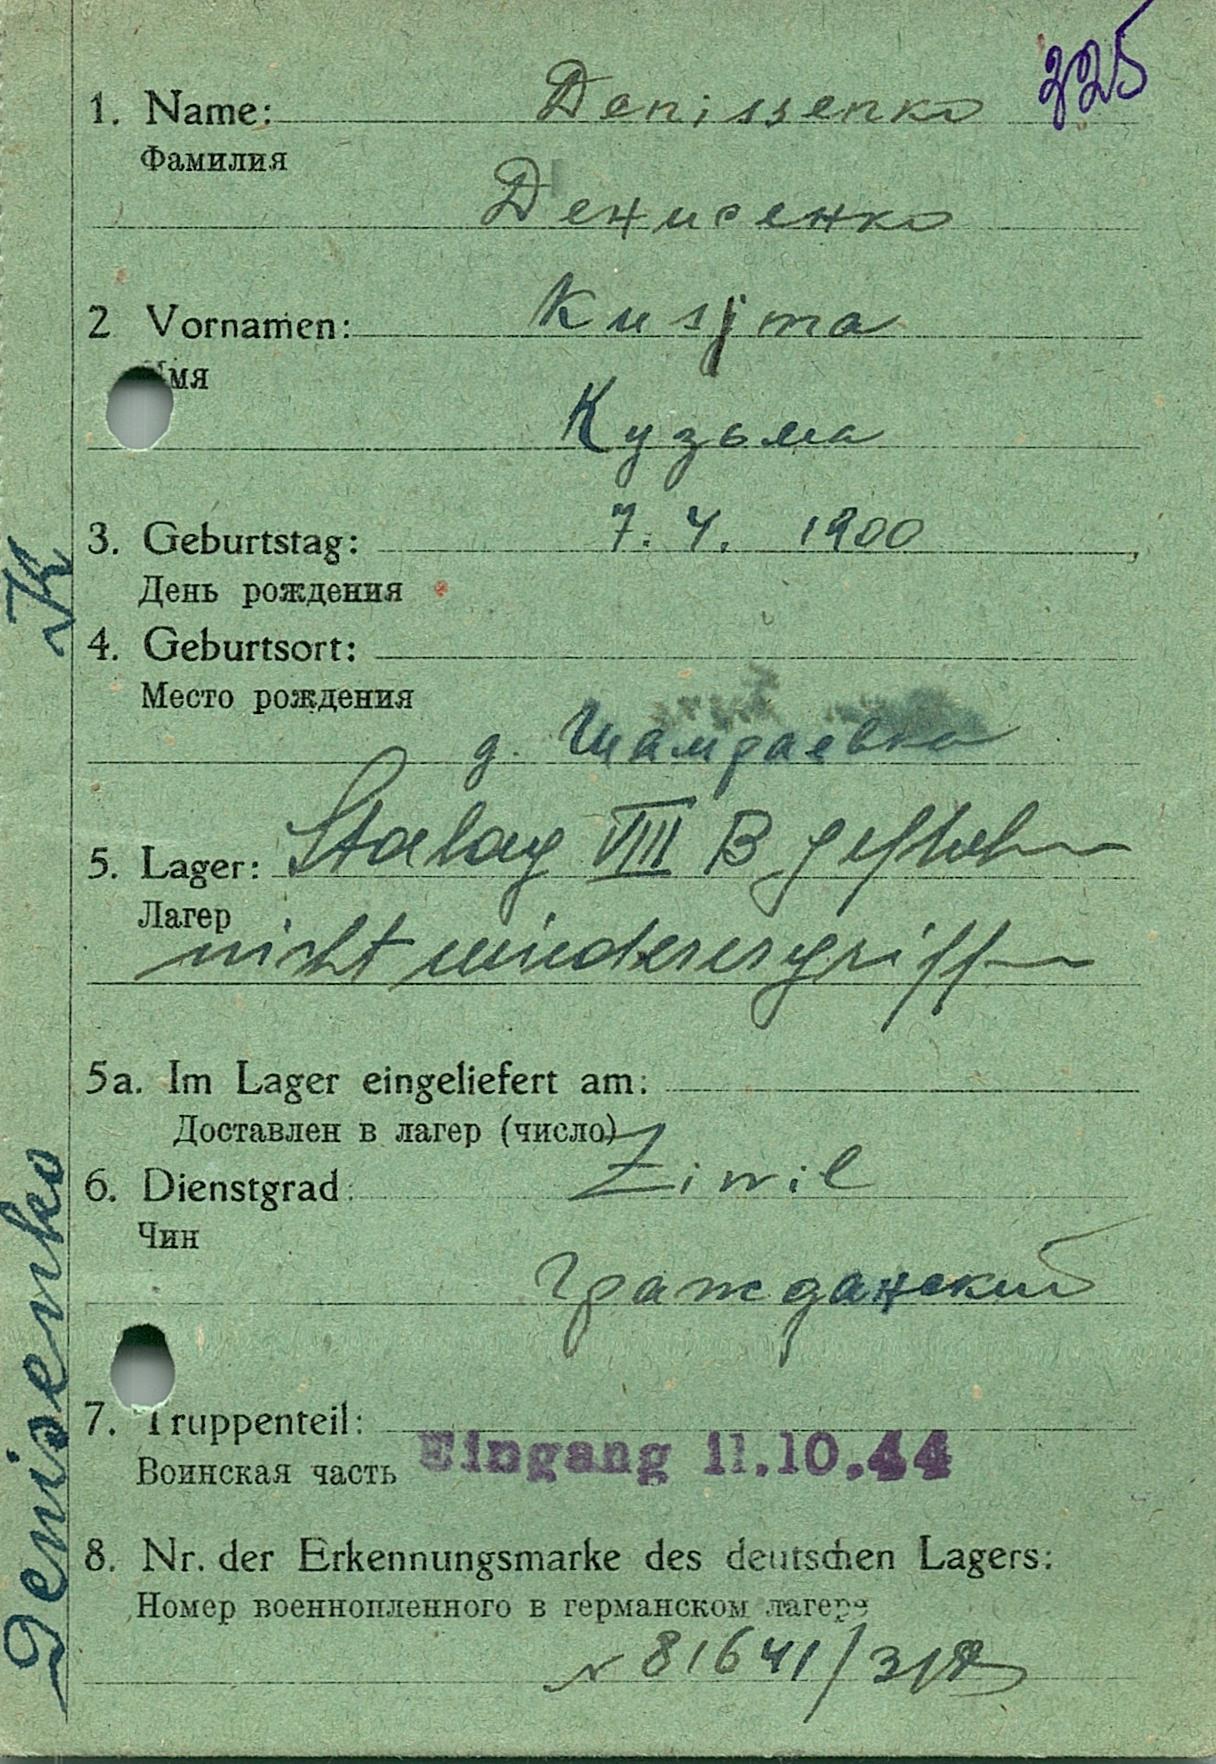 225
1. Name: Denissenko
Фамилия
Денисенко
2 Vornamen: Kusjma
Имя
Кузьма
3. Geburtstag: 7. 4. 1900
День рождения
4. Geburtsort:
Место рождения
д. Шамраевка
5. Lager: Stalag VIII B geflohen
Лагер
nicht wiederergriffen
5a. Im Lager eingeliefert am:
Доставлен в лагер (число)
6. Dienstgrad: Ziwil
Чин
Гражданский
7. Truppenteil:
Воинская часть
Eingang 11.10.44
8. Nr. der Erkennungsmarke des deutschen Lagers:
Номер военнопленного в германском лагере
N 81641/
Denisenko K